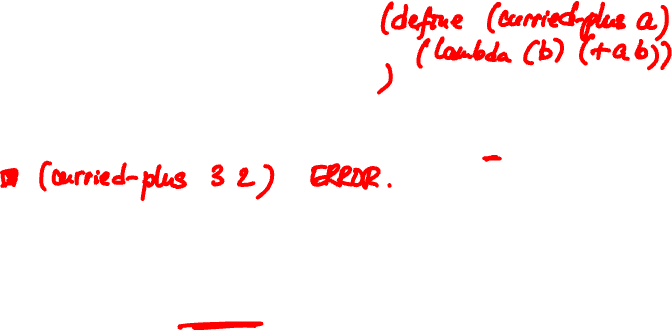 (define (curried-plus a)
(lambda (b) (+ a b))
)
(curried-plus 3 2) ERROR.